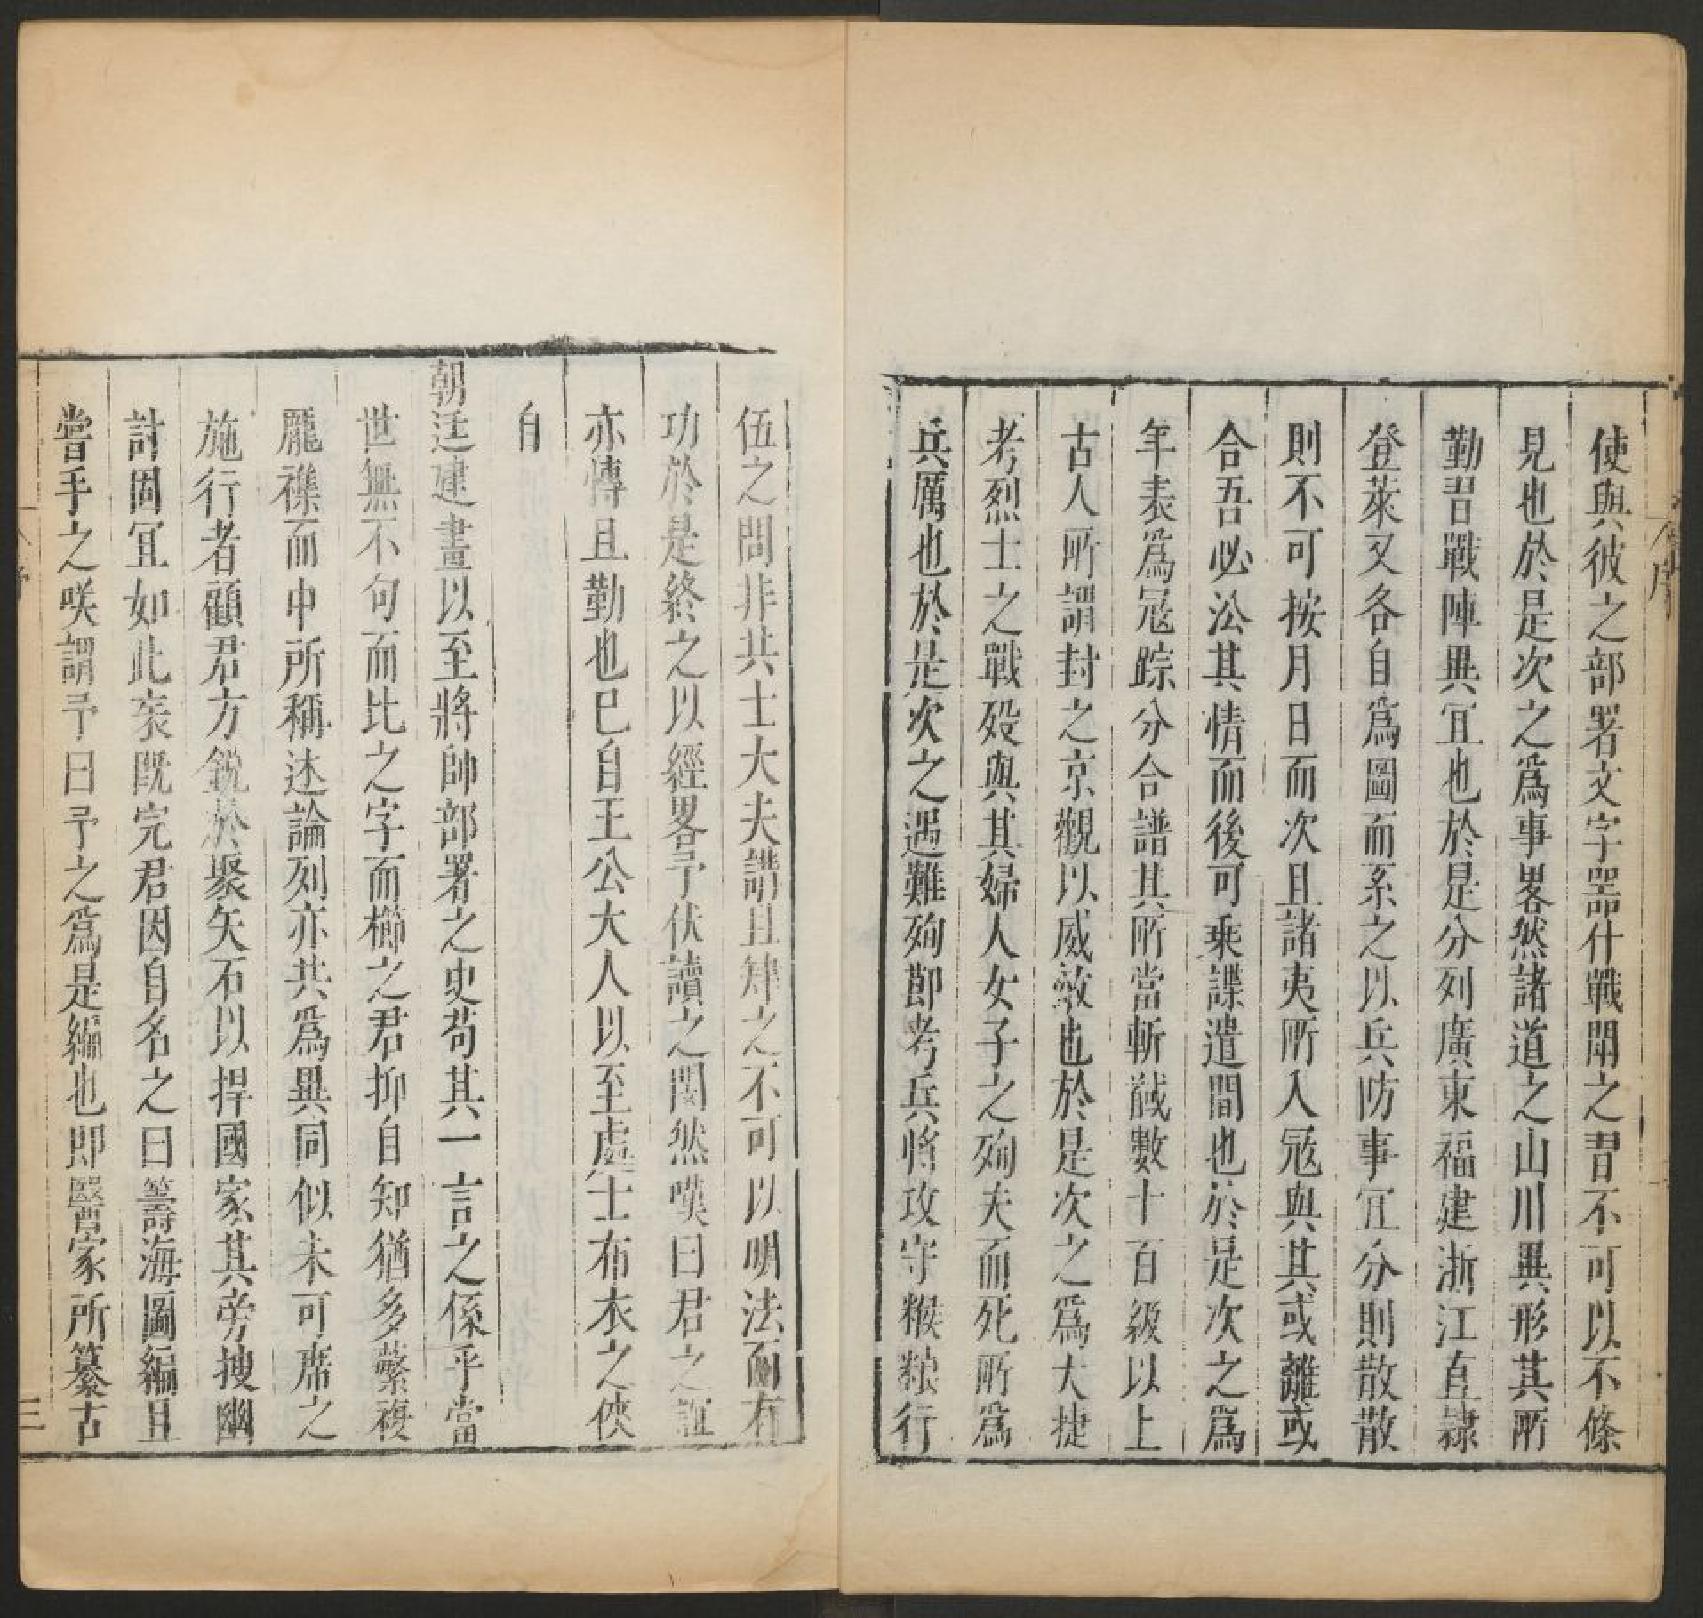 序
使與彼之部署文字器什戰鬬之𣅜不可以不條
見也於是次之爲事畧然諸道之山川異形其所
勤𣅜戰陣異宜也於是分列廣東福建浙江直隷
登萊又各自爲圖而系之以兵防事宜分則散散
則不可按月日而次且諸夷所入㓂與其或離或
合吾必㳂其情而後可乗諜遣間也於是次之爲
年表爲㓂踪分合譜其所當斬馘數十百級以上
古人所謂封之京觀以威敵也於是次之爲大捷
考烈士之戰歿與其婦人女子之殉夫而死所爲
兵厲也於是次之遇難殉節考兵將攻守糇粮行
伍之間非共士大夫講且肄之不可以明法而有
功於是終之以經畧予伏讀之関然嘆曰君之誼
亦慱且勤也巳自王公大人以至處士布衣之俠
自
朝廷建畫以至將帥部署之史苟其一言之係乎當
世無不句而比之字而櫛之君抑自知猶多蘩複
厖襍而中所稱述論列亦共爲異同似未可席之
施行者顧君方銳於聚矢石以捍國家其旁搜幽
討固冝如此表既完君因自名之曰籌海圖編且
嘗手之咲謂予曰予之爲是編也即醫家所纂古
三